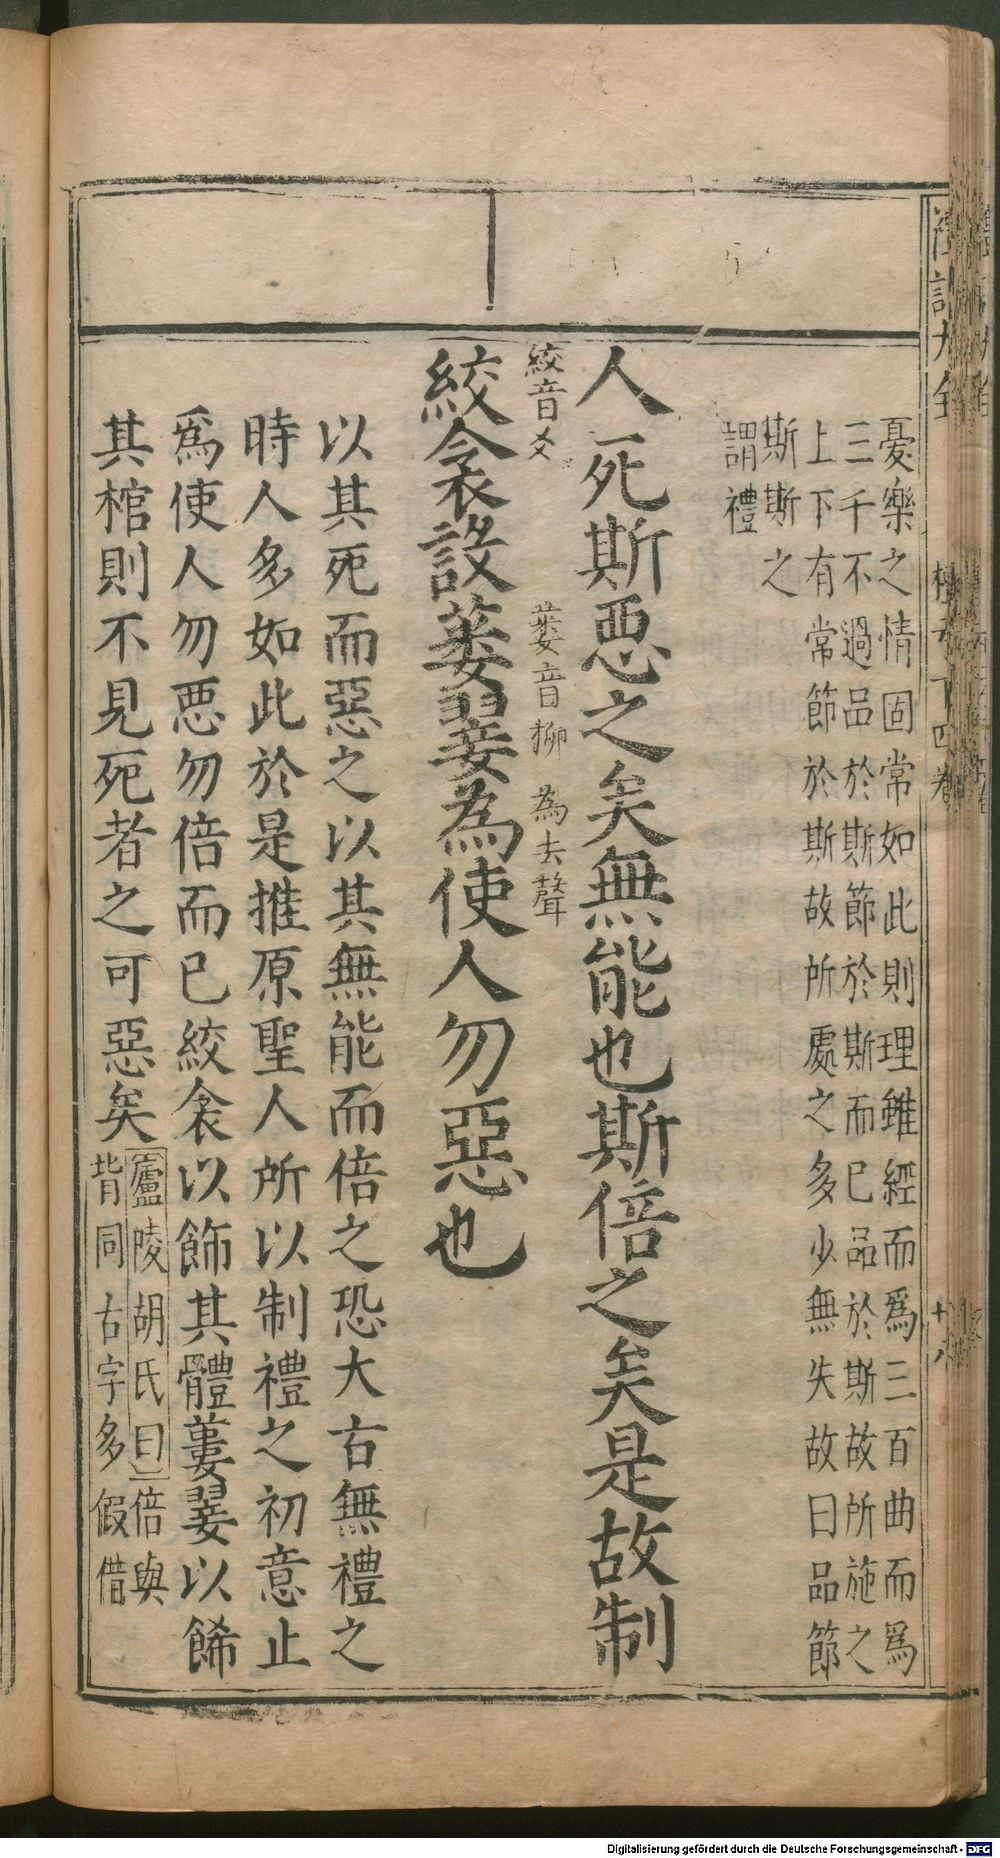 憂樂之情固常如此則理雖經而爲三百曲而爲
三千不過品於斯節於斯而已品於斯故所施之
上下有常節於斯故所處之多少無失故曰品節
斯斯之
謂禮
人死斯惡之矣無能也斯倍之矣是故制
絞音爻
蔞音柳 為去聲
絞衾設蔞翣為使人勿惡也
以其死而惡之以其無能而倍之恐大古無禮之
時人多如此於是推原聖人所以制禮之初意止
爲使人勿惡勿倍而已絞衾以飾其體蔞翣以餙
其棺則不見死者之可惡矣
廬陵胡氏曰倍與
背同古字多假借
檀弓下四卷
十八
Digitalisierung gefördert durch die Deutsche Forschungsgemeinschaft - DFG